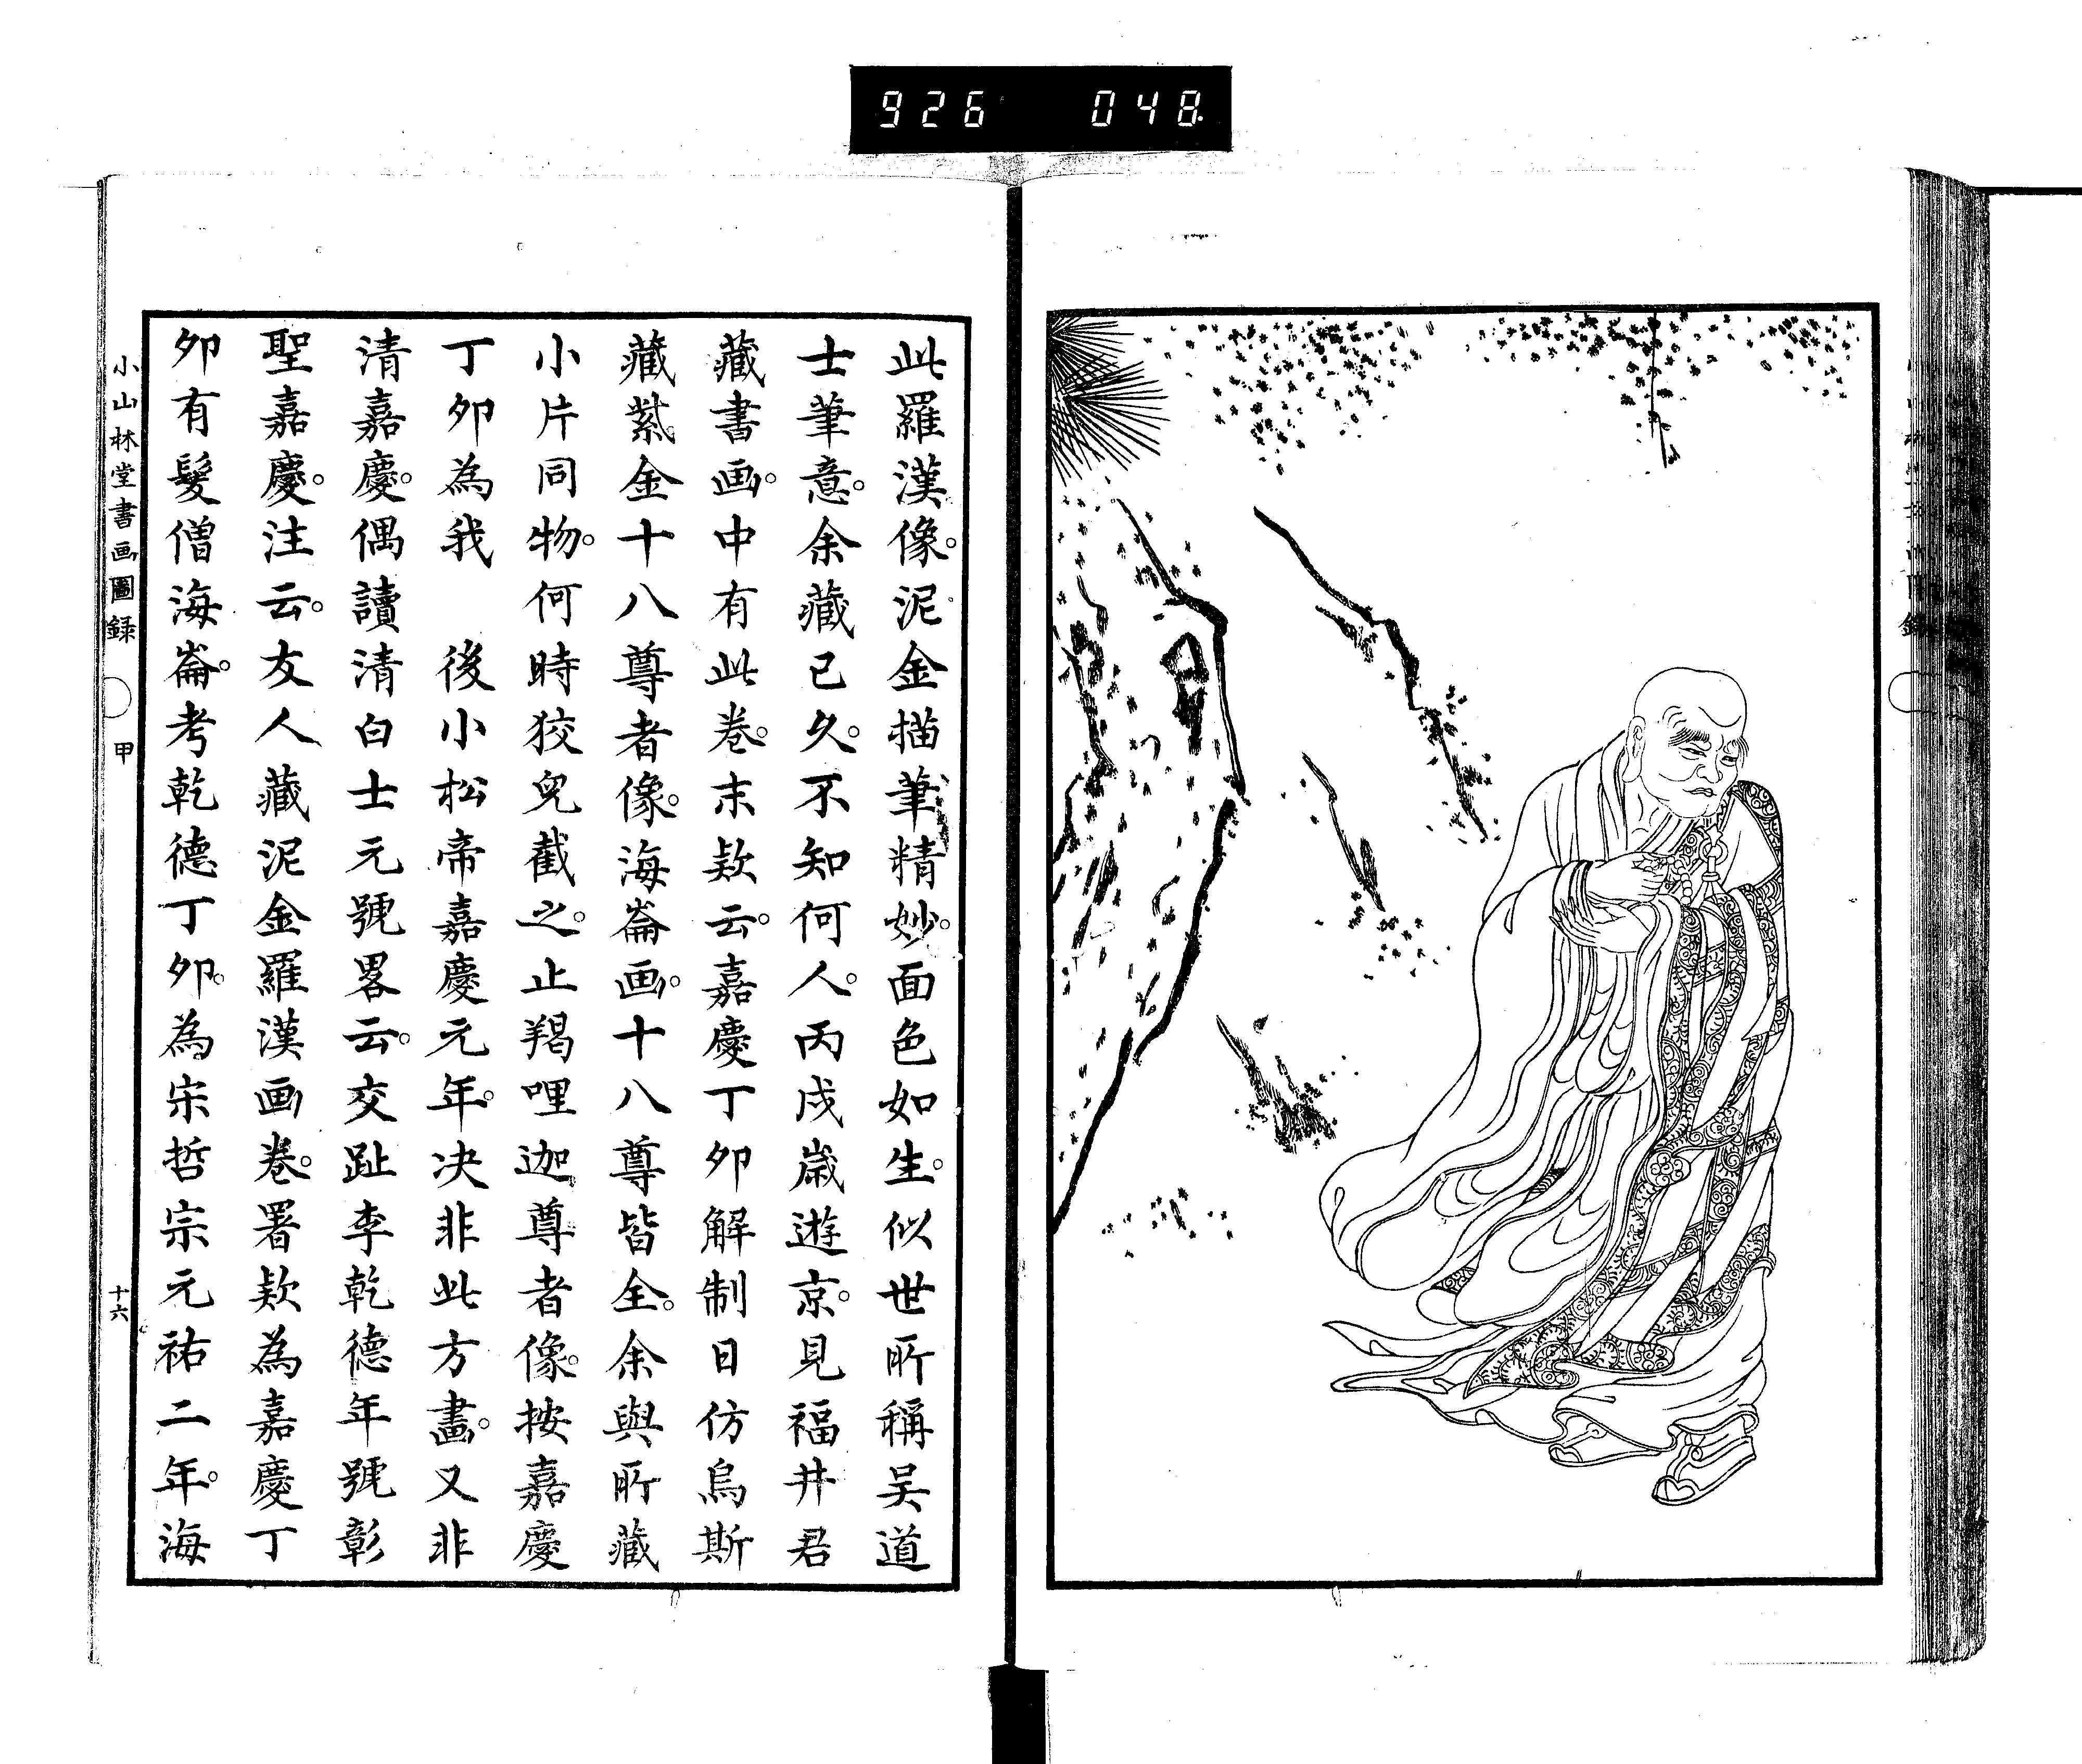 926 048
此羅漢像。泥金描筆精妙。面色如生。似世所稱吴道
士筆意。余藏已久。不知何人。丙戌歲遊京。見福井君
藏書画。中有此卷。末款云。嘉慶丁卯解制日仿烏斯
藏紫金十八尊者像。海崙画。十八尊皆全。余與所藏
小片同物。何時狡兒截之。止羯哩迦尊者像。按嘉慶
丁卯為我 後小松帝嘉慶元年。决非此方畫。又非
清嘉慶。偶讀清白士元號畧云。交趾李乾德年號彰
聖嘉慶。注云。友人藏泥金羅漢画卷。署款為嘉慶丁
卯有髮僧海崙。考乾德丁卯。為宋哲宗元祐二年。海
小山林堂書画圖録 甲 十六